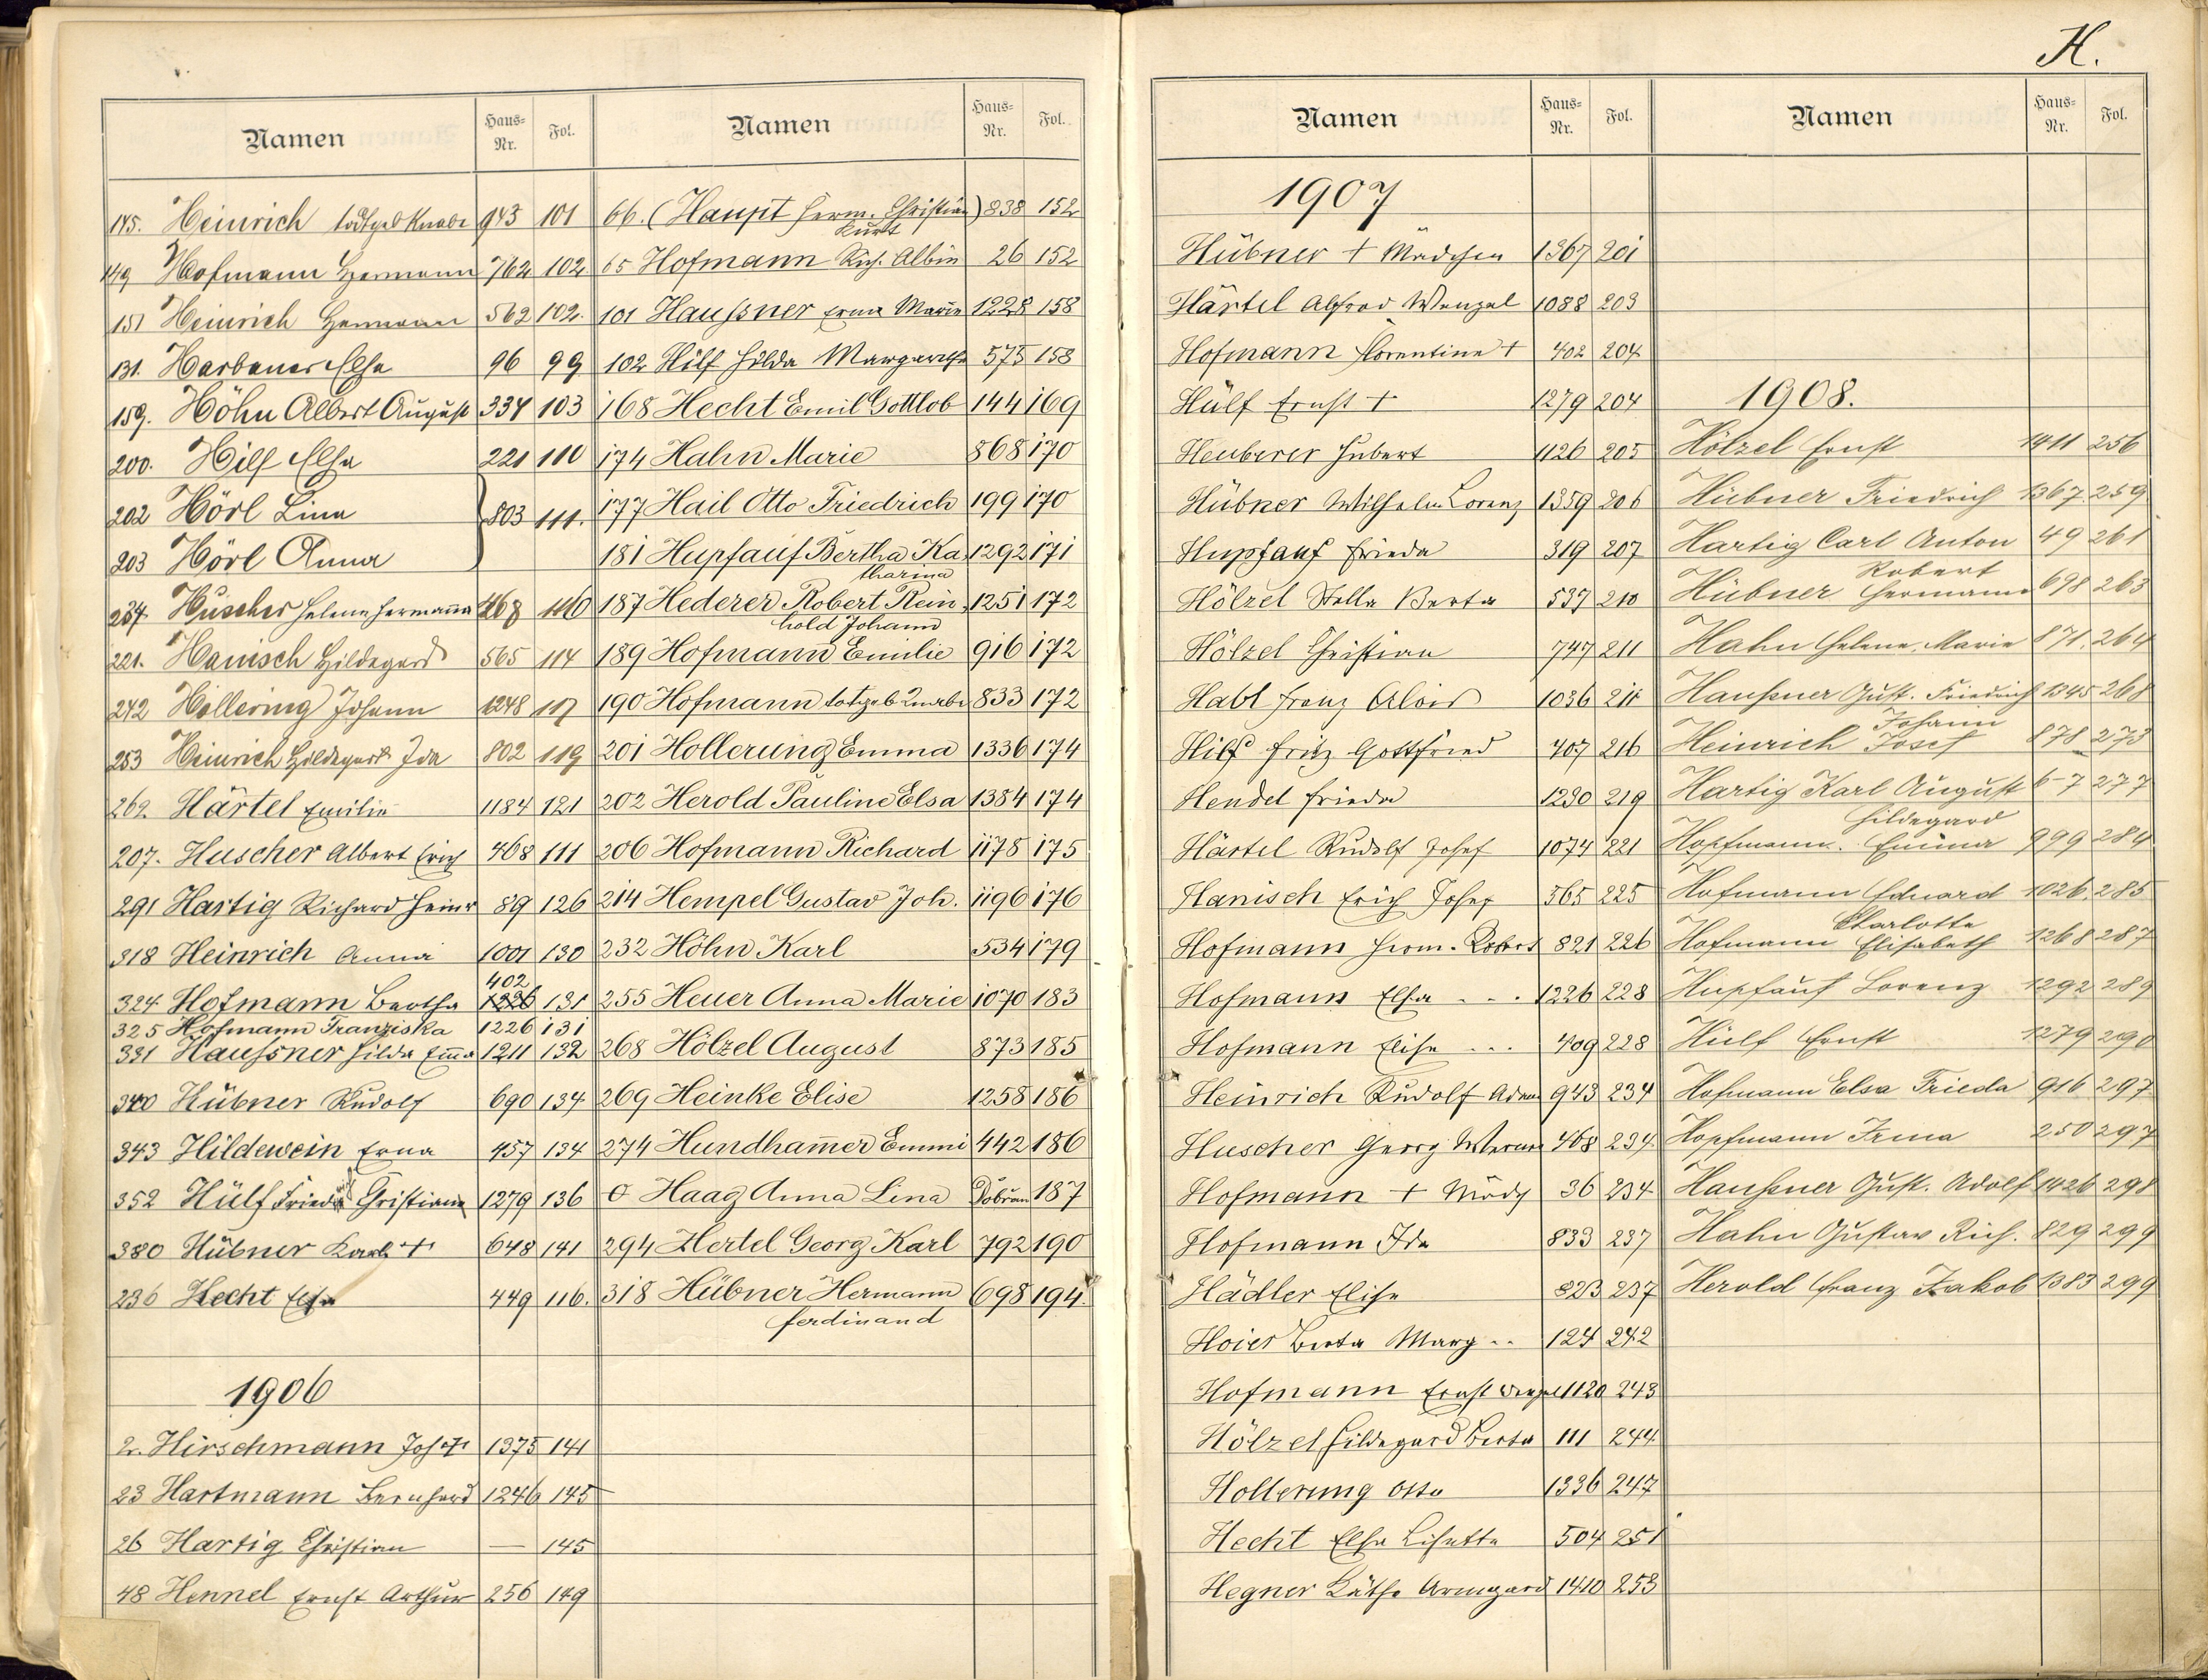 H.
Namen Haus-Nr. Fol.
145. Heinrich todtgeb Knabe 943 101
149 Hofmann Hermann 762 102
151 Heinrich Hermann 562 102.
131. Harbauer Elsa 96 99
159. Höhn Albert August 334 103
200. Hilf Elsa 221 110
202 Hörl Lina 803 111.
203 Hörl Anna
234 Huscher Helene Hermanna 468 116
221. Hanisch Hildegard 565 114
242 Hollering Johann 1248 117
253 Heinrich Hildegard Ida 802 119
262 Härtel Emilie 1184 121
207. Huscher Albert Erich 468 111
291 Hartig Richard Heinr 89 126
318 Heinrich Anna 1001 130
402
324 Hofmann Bertha 1226 131
325 Hofmann Franziska 1226 131
331 Haußner Hilda Em̄a 1211 132
340 Hübner Rudolf 690 134
343 Hildewein Erna 457 134
352 Hülf Frieda Christiana 1279 136
380 Hübner Karl + 648 141
236 Hecht Elsa 449 116.
1906
2. Hirschmann Jos + 1375 141
23 Hartmann Bernhard 1246 145
26 Hartig Christian — 145
48 Hennel Ernst Arthur 256 149
Namen Haus-Nr. Fol.
66. (Haupt Herm. Christian) 838 152
Kurt
65 Hofmann Rich. Albin 26 152
101 Haußner Erna Marie 1228 158
102 Hilf Hilda Margaretha 575 158
168 Hecht Emil Gottlob 144 169
174 Hahn Marie 868 170
177 Hail Otto Friedrich 199 170
181 Hupfauf Bertha Ka 1292 171
tharina
187 Hederer Robert Rein 1251 172
hold Johann
189 Hofmann Emilie 916 172
190 Hofmann totgeb. Knabe 833 172
201 Hollerung Emma 1336 174
202 Herold Pauline Elsa 1384 174
206 Hofmann Richard 1178 175
214 Hempel Gustav Joh. 1196 176
232 Höhn Karl 534 179
255 Heuer Anna Marie 1070 183
268 Hölzel August 873 185
269 Heinke Elise 1258 186
274 Hundham̄er Emmi 442 186
0 Haag Anna Lina Dobřan 187
294 Hertel Georg Karl 792 190
318 Hübner Hermann 698 194.
ferdinand
Namen Haus-Nr. Fol.
1907
Hübner + Mädchen 1367 201
Härtel Alfred Wenzel 1088 203
Hofmann Florentine + 402 204
Hülf Ernst + 1279 204
Heuberer Hubert 1126 205
Hübner Wilhelm Lorenz 1359 206
Hupfauf Frieda 319 207
Hölzel Stella Berta 537 210
Hölzel Christian 747 211
Habl Franz Alois 1036 211
Hilf Fritz Gottfried 407 216
Hendel Frieda 1230 219
Härtel Rudolf Josef 1074 221
Hanisch Erich Josef 565 225
Hofmann Herm. Robert 821 226
Hofmann Elsa - - - 1226 228
Hofmann Elise - - - 409 228
Heinrich Rudolf Adam 943 234
Huscher Georg Werner 468 234.
Hofmann + Mädch 36 234
Hofmann Ida 833 237
Hädler Elise 823 237
Hoier Berta Marg - - 124 242
Hofmann Ernst Wenzel 1120 243
Hölzel Hildegard Berta 111 244
Hollerung Otto 1336 247
Hecht Elsa Lisette 504 251
Hegner Käthe Armgard 1410 253
Namen Haus-Nr. Fol.
1908.
Hölzel Ernst 1411 256
Hübner Friedrich 1367 259
Hartig Carl Anton 49 261
Robert
Hübner Hermann 698 263
Hahn Helene Marie 871. 264
Haußner Gust. Friedrich 1345 268
Johann
Heinrich Josef 878 273
Hartig Karl August 6-7 277
Hildegard
Hopfmann. Emma 999 284
Hofmann Eduard 1026. 285
Charlotte
Hofmann Elisabeth 1268 287
Hupfauf Lorenz 1292 289
Hülf Ernst 1279 290
Hofmann Elsa Frieda 916 297
Hopfmann Irma 250 297
Haußner Gust. Adolf 1426 298
Hahn Gustav Rich. 829 299
Herold Franz Jakob 1383 299